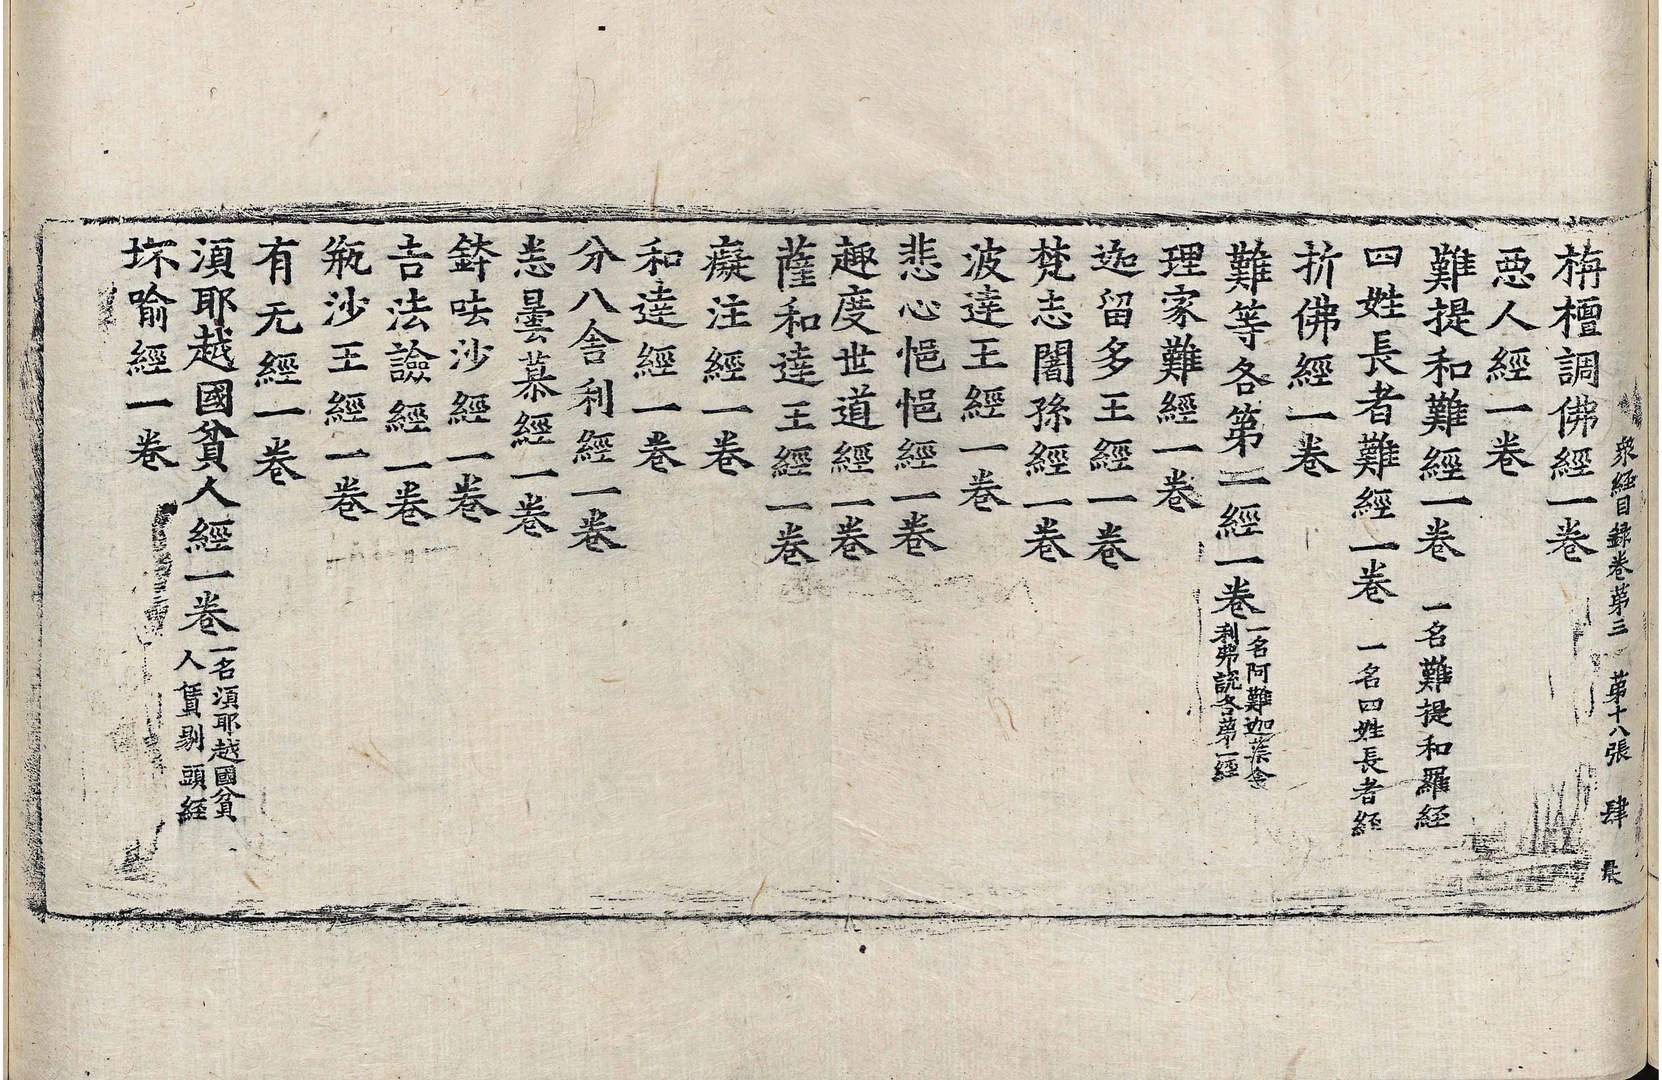 衆経目録卷第三　第十八張　肆
栴檀調佛經一卷
惡人經一卷
難提和難經一卷　一名難提和羅経
四姓長者難經一卷　一名四姓長者経
折佛經一卷
難等各第一經一卷一名阿難迦葉舍利弗說各第一経
理家難經一卷
迦留多王經一卷
梵志闍孫經一卷
波達王經一卷
悲心悒悒經一卷
趣度世道經一卷
薩和達王經一卷
癡注經一卷
和達經一卷
分八舍利經一卷
恙曇慕經一卷
鉢呿沙經一卷
吉法譣經一卷
瓶沙王經一卷
有无經一卷
湏耶越國貧人經一卷一名湏耶越國貧人賃剔頭経
坏喻經一卷